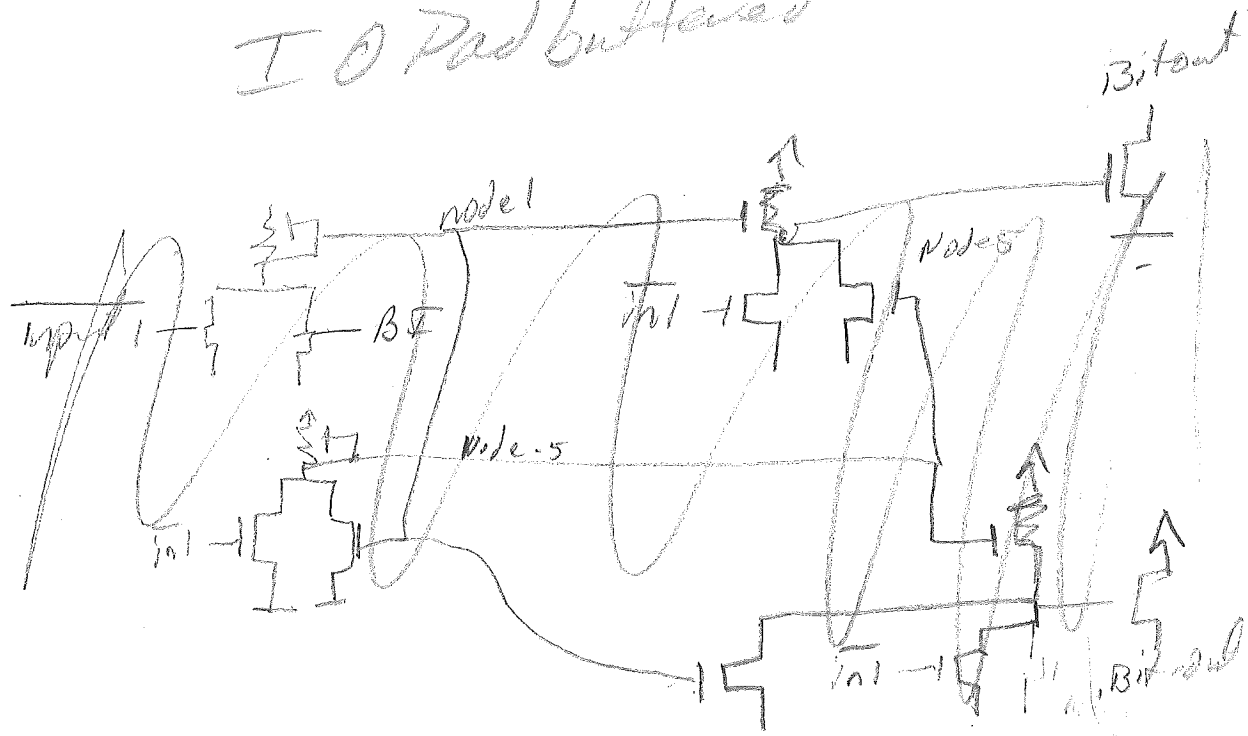 I O Pad buffered
Bitout
node1
Node5
Input 1
BI
in1
Node-5
in1
in1
Bit out